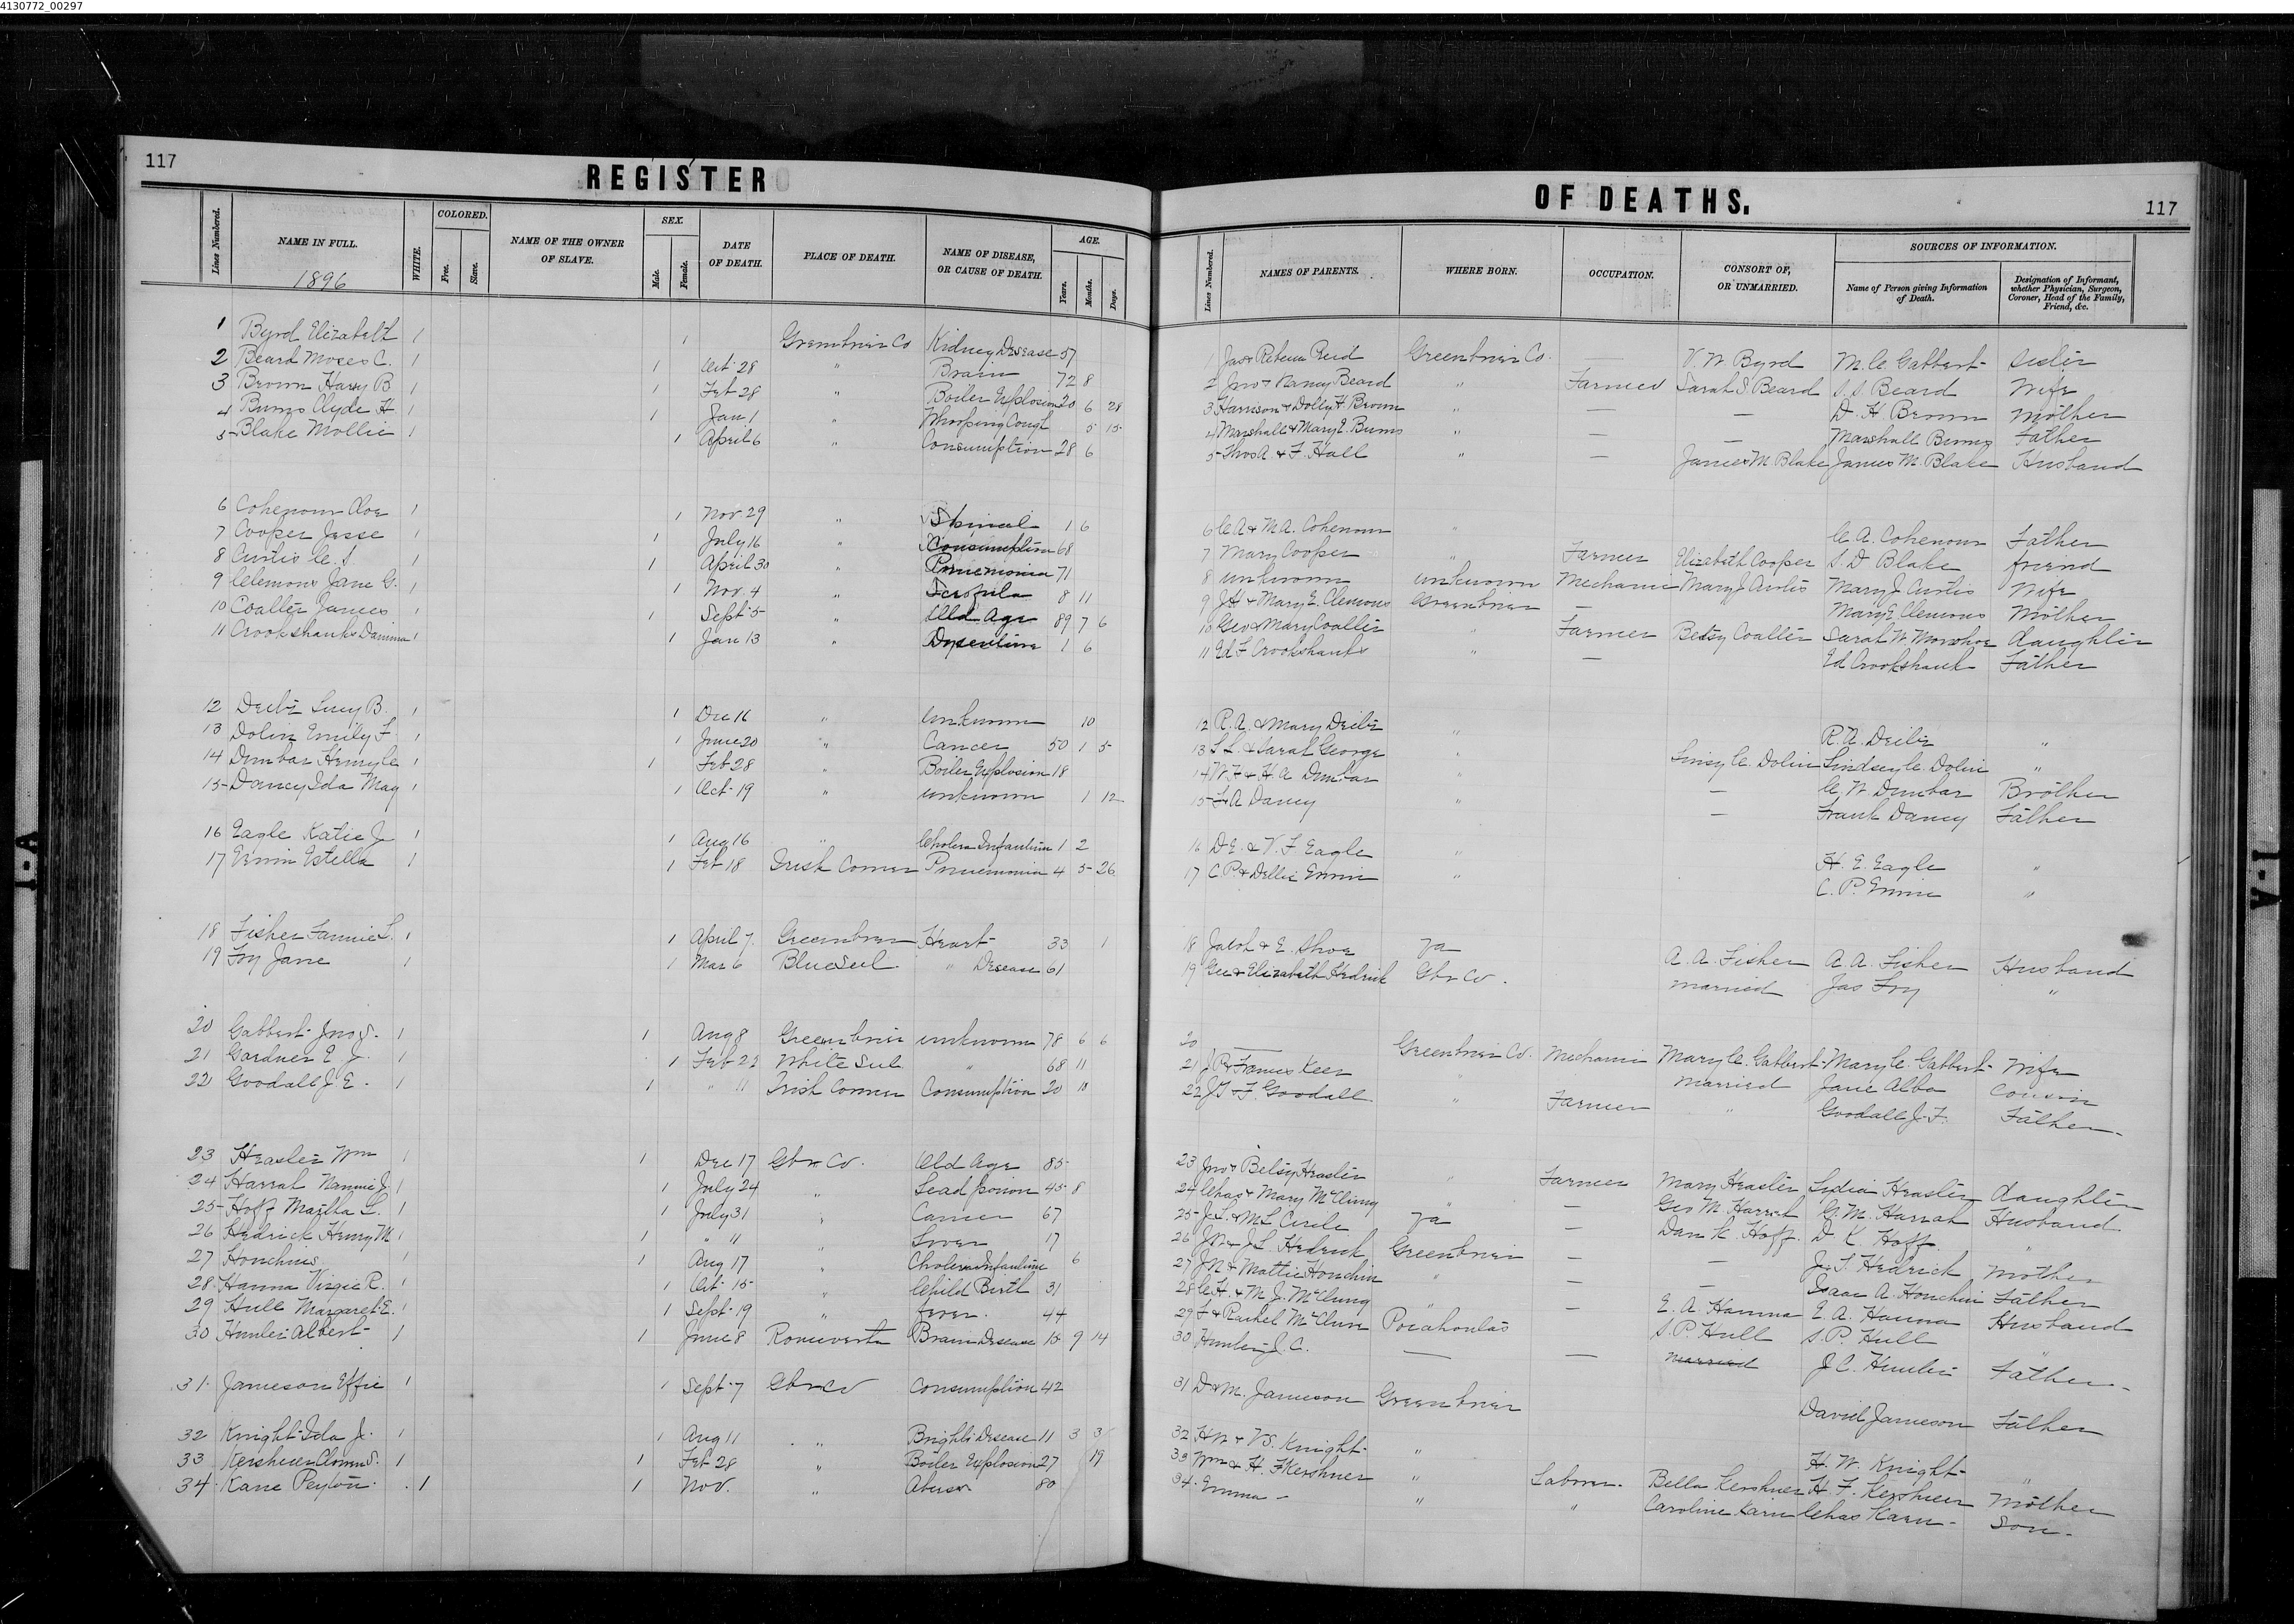 4130772_00297
117
REGISTER
Lines Numbered.
NAME IN FULL.
1896
WHITE.
COLORED.
Free.
Slave.
NAME OF THE OWNER OF SLAVE.
SEX.
Male.
Female.
DATE OF DEATH.
PLACE OF DEATH.
NAME OF DISEASE, OR CAUSE OF DEATH.
AGE.
Years.
Months.
Days.
1 Byrd Elizabeth 1 1 Greenbrier Co Kidney Disease 57
2 Beard Moses C. 1 1 Oct 28 " Brain 72 8
3 Brown Harry B 1 1 Feb 28 " Boiler Explosion 20 6 28
4 Burns Clyde H 1 1 Jan 1 " Whooping Cough 5 15
5 Blake Mollie 1 1 April 6 " Consumption 28 6
6 Cohenour 1 1 Nov 29 " Spinal 1 6
7 Cooper Jesse 1 1 July 16 " Consumption 68
8 Curtis C. S. 1 1 April 30 " Pneumonia 71
9 Clemons Jane G. 1 1 Nov. 4 " Scrofula 8 11
10 Coalter James 1 1 Sept 5 " Old Age 89 7 6
11 Crookshanks 1 1 Jan 13 " 1 6
12 Deitz Lucy B. 1 1 Dec 16 " unknown 10
13 Dolin Emily F. 1 1 June 20 " Cancer 50 1 5
14 Dunbar Henry C 1 1 Feb 28 " Boiler Explosion 18
15 Dancy Ida May 1 1 Oct 19 " unknown 1 12
16 Eagle Katie J 1 1 Aug 16 " Cholera Infantum 1 2
17 Ervin Estella 1 1 Feb 18 Irish Corner Pneumonia 4 5 26
18 Fisher Fannie L. 1 1 April 7. Greenbrier Heart 33 1
19 Fry Jane 1 1 Mar 6 Blue Sul. " Disease 61
20 Gabbert Jno S. 1 1 Aug 8 Greenbrier unknown 78 6 6
21 Gardner E. J. 1 1 Feb 22 White Sul " 68 11
22 Goodall J. E. 1 1 " 11 Irish Corner Consumption 20 10
23 Hrasler Wm 1 1 Dec 17 Gbr Co. Old Age 85
24 Harrah Nannie J. 1 1 July 24 " Lead poison 45 8
25 Hoff Martha L. 1 1 July 31 " Cancer 67
26 Hedrick Henry M 1 1 " " " Liver 17
27 Houchins 1 1 Aug 17 " Cholera Infantum 6
28 Hanna Virgie R. 1 1 Oct 15 " Child Birth 31
29 Hull Margaret E. 1 1 Sept 19 " fever. 44
30 Hunter Albert 1 1 June 8 Ronceverte Brain Disease 15 9 14
31 Jameson Effie 1 1 Sept 7 Gbr Co Consumption 42
32 Knight Ida J. 1 1 Aug 11 " Brights Disease 11 3 3
33 Kershner 1 1 Feb 28 " Boiler Explosion 27 19
34 Kane Peyton 1 1 Nov. " 80
OF DEATHS.
117
Lines Numbered.
NAMES OF PARENTS.
WHERE BORN.
OCCUPATION.
CONSORT OF, OR UNMARRIED.
SOURCES OF INFORMATION.
Name of Person giving Information of Death.
Designation of Informant, whether Physician, Surgeon, Coroner, Head of the Family, Friend, &c.
1 Jas & Rebecca Reid Greenbrier Co. — V. W. Byrd M. C. Gabbert sister
2 Jno & Nancy Beard " Farmer Sarah S Beard S. S. Beard Wife
3 Harrison & Dolly H Brown " — — D. H Brown Mother
4 Marshall & Mary E. Burns " — — Marshall Burns Father
5 Thos A. & F. Hall " — James M. Blake James M. Blake Husband
6 C A & M. A. Cohenour " C. A. Cohenour Father
7 Mary Cooper " Farmer Elizabeth Cooper S. D Blake friend
8 unknown unknown Mechanic Mary J Curtis Mary J. Curtis Wife
9 J H & Mary E. Clemons Greenbrier — Mary E Clemons Mother
10 Geo & Mary Coalter " Farmer Betsy Coalter Sarah W daughter
11 Ed F Crookshanks " — Ed Crookshank Father
12 R. A. & Mary Deitz " R. A. Deitz "
13 S L. & Sarah George " Linsy C. Dolin Lindsey C. Dolin "
14 W. F. & H. A Dunbar " — C. W Dunbar Brother
15 F A Dancy " — Frank Dancy Father
16 D E. & V. F. Eagle " H. E. Eagle "
17 C. P. & Dellie Ervin " C. P. Ervin "
18 Jacob & E. Shoe Va A. A. Fisher A. A. Fisher Husband
19 Geo & Elizabeth Hedrick Gbr Co. married Jas Fry "
20 — Greenbrier Co. Mechanic Mary C. Gabbert Mary C. Gabbert Wife
21 J. R & Frances Keer " married Jane Alba Cousin
22 J T & F. Goodall " Farmer " Goodall J. F. Father
23 Jno & Betsy Hrasler " Farmer Mary Hrasler Lydia Hrasler daughter
24 Chas & Mary McClung " — Geo M. Harrah G. M. Harrah Husband
25 J. L. & M L Circle Va — Dan K. Hoff. D K Hoff. "
26 J W & J. L. Hedrick Greenbrier — — J. L. Hedrick Mother
27 J W & Mattie Houchin " — — Isaac A. Houchin Father
28 C H. & M. J. McClung " — E. A. Hanna E. A. Hanna Husband
29 F & Rachel McClure Pocahontas S. P. Hull S. P. Hull "
30 Hunter J. C. — — married J. C. Hunter Father
31 D & M. Jameson Greenbrier David Jameson Father
32 H W & V S. Knight " H. W. Knight "
33 Wm & H. F Kershner " Laborer. Bella Kershner H. F. Kershner Mother
34 Emma — " " Caroline Karn Chas Karn Son